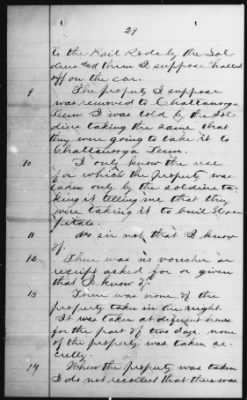 29
to the Rail Rode by the Sol
diers and them I suppose hauled
off on the car.
9 The property I suppose
was removed to Chattanooga
Tenn I was told by the Sol
diers taking the same that
they were going to take it to
Chattanooga Tenn.
10 I only know the use
for which the property was
taken only by the soldiers ta-
king it telling me that they
were taking it to build Hos
pitals.
11 No sir not that I know
of.
12 There was no voucher or
receipt asked for or given
that I know of.
13 There was none of the
property taken in the night.
It was taken at different hours
for the part of two days none
of the property was taken se-
cretly.
24 When the property was taken
I do not recollect that there was